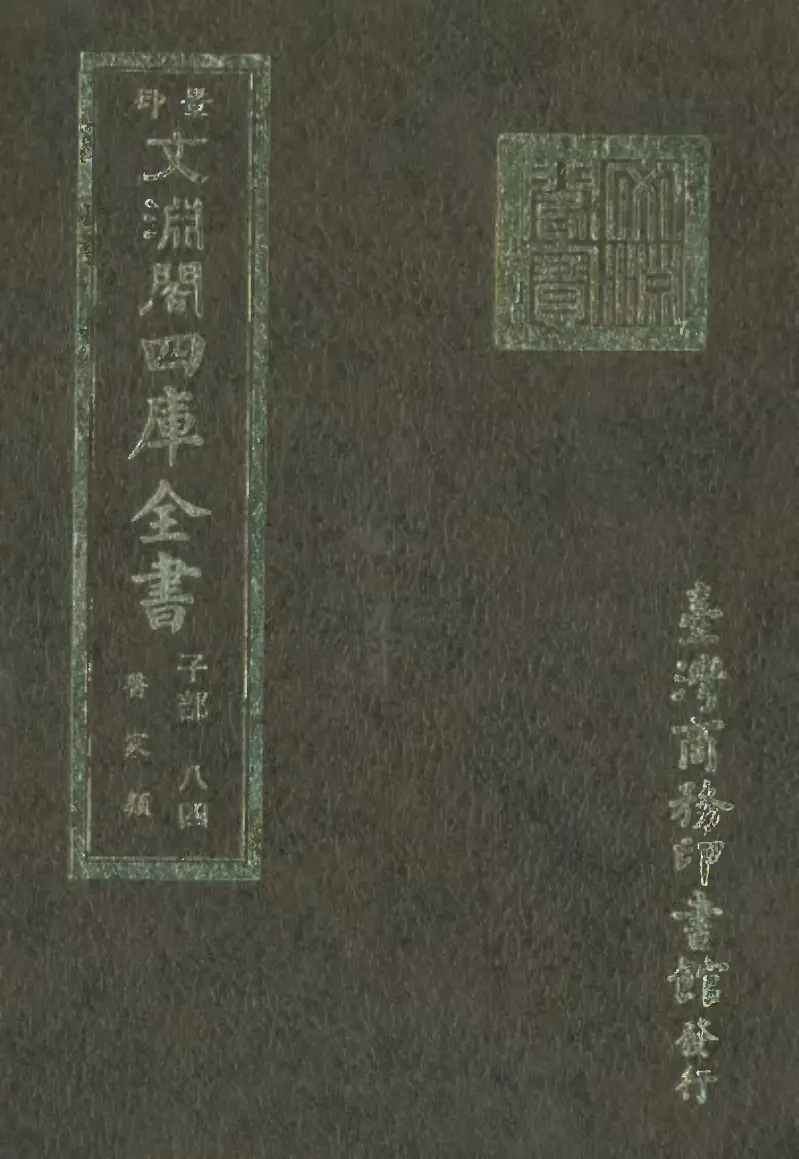 景印
文淵閣四庫全書
子部 八四
醫家類
文淵
閣寶
臺灣商務印書館發行